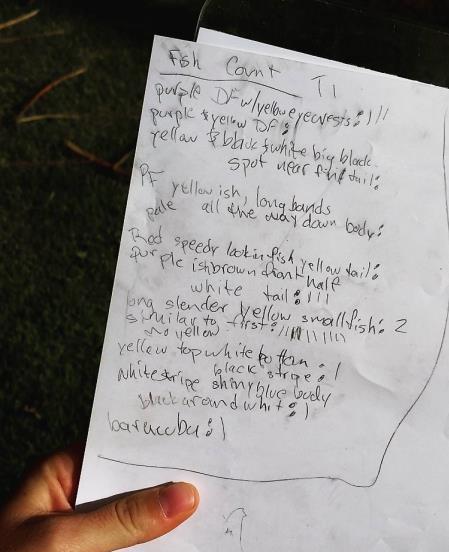 Fish Count T1
purple DF w/yellow eye crests: 111
purple & yellow DF: 1
yellow & black & white big black
spot near tail:
PF yellowish, long bands
pale all the way down body:
Red speedy lookin fish yellow tail:
purple ishbrown front half
white tail: 111
long slender yellow small fish: 2
similar to first:
no yellow
yellow top white bottom: 1
black stripe:
white stripe shiny blue body
black around whit: 1
baracuba: 1